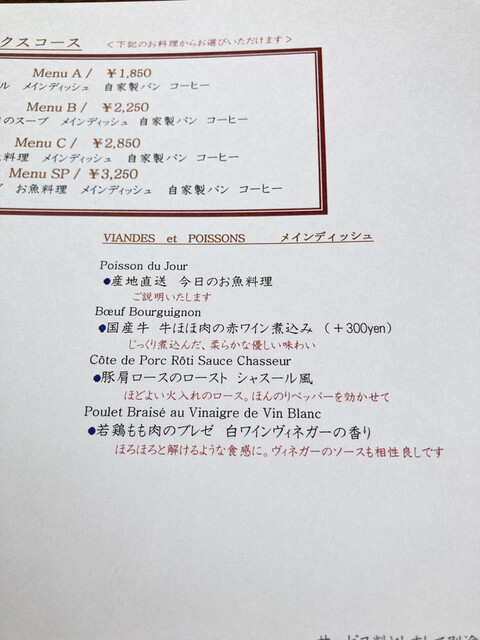 クスコース ＜下記のお料理からお選びいただけます＞
Menu A / ￥1,850
ル メインディッシュ 自家製パン コーヒー
Menu B / ￥2,250
のスープ メインディッシュ 自家製パン コーヒー
Menu C / ￥2,850
料理 メインディッシュ 自家製パン コーヒー
Menu SP / ￥3,250
お魚料理 メインディッシュ 自家製パン コーヒー
VIANDES et POISSONS メインディッシュ
Poisson du Jour
●産地直送 今日のお魚料理
ご説明いたします
Bœuf Bourguignon
●国産牛 牛ほほ肉の赤ワイン煮込み (＋300yen)
じっくり煮込んだ、柔らかな優しい味わい
Côte de Porc Rôti Sauce Chasseur
●豚肩ロースのロースト シャスール風
ほどよい火入れのロース。ほんのりペッパーを効かせて
Poulet Braisé au Vinaigre de Vin Blanc
●若鶏もも肉のブレゼ 白ワインヴィネガーの香り
ほろほろと解けるような食感に。ヴィネガーのソースも相性良しです